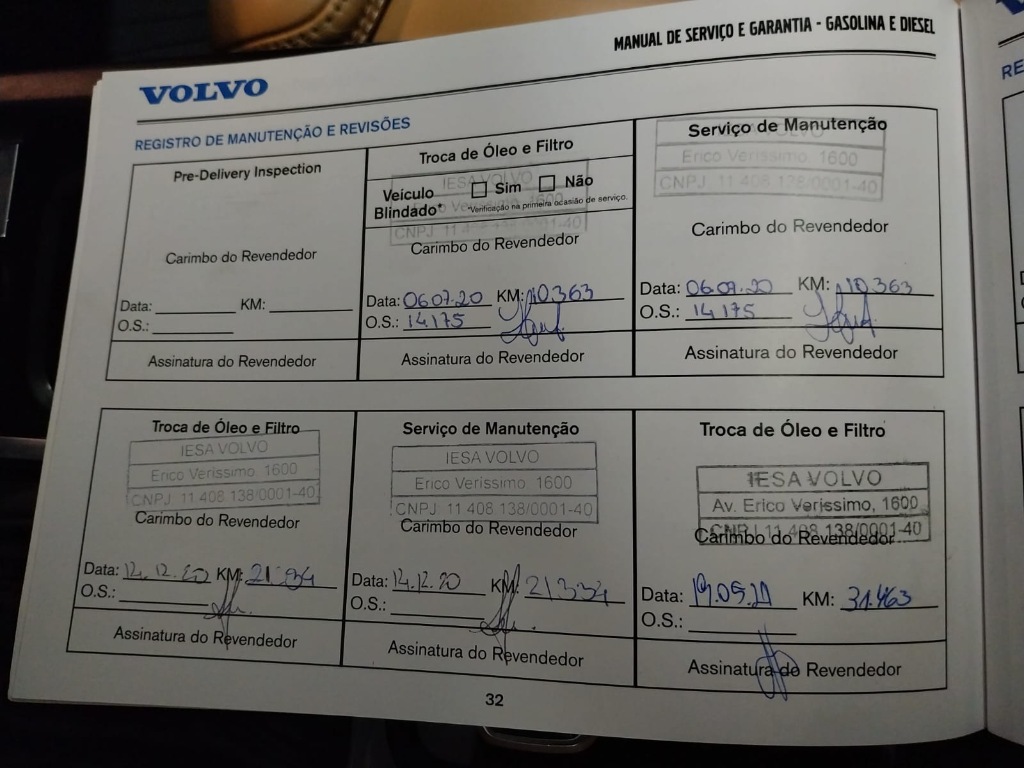 MANUAL DE SERVIÇO E GARANTIA - GASOLINA E DIESEL
VOLVO
REGISTRO DE MANUTENÇÃO E REVISÕES
Pre-Delivery Inspection
Carimbo do Revendedor
Data: KM:
O.S.:
Assinatura do Revendedor
Troca de Óleo e Filtro
IESA VOLVO
Veículo Sim Não
Blindado* *Verificação na primeira ocasião de serviço.
Carimbo do Revendedor
Data: 06.07.20 KM: 10.363
O.S.: 14175
Assinatura do Revendedor
Serviço de Manutenção
Erico Verissimo, 1600
CNPJ: 11.408.138/0001-40
Carimbo do Revendedor
Data: 06.07.20 KM: 10.363
O.S.: 14175
Assinatura do Revendedor
Troca de Óleo e Filtro
IESA VOLVO
Erico Verissimo, 1600
CNPJ: 11.408.138/0001-40
Carimbo do Revendedor
Data: 14.12.20 KM:
O.S.:
Assinatura do Revendedor
Serviço de Manutenção
IESA VOLVO
Erico Verissimo, 1600
CNPJ: 11.408.138/0001-40
Carimbo do Revendedor
Data: 14.12.20 KM: 21334
O.S.:
Assinatura do Revendedor
Troca de Óleo e Filtro
IESA VOLVO
Av. Erico Verissimo, 1600
CNPJ: 11.408.138/0001-40
Carimbo do Revendedor
Data: 19.05.21 KM: 31.463
O.S.:
Assinatura do Revendedor
32
RE